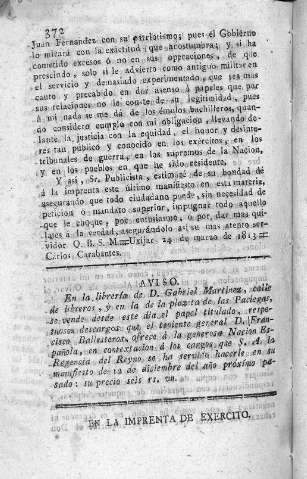 372
Juan Fernandez con su patriotismo; pues el Gobierno
lo mirará con la exâctitud, que acostumbra; y si ha
cometido excesos ó no en sus operaciones, de que
prescindo, solo sí le advierto como antiguo militar en
el servicio y demasiado experimentado, que sea mas
cauto y precabido en dar asenso á papeles que por
sus relaciones no le conste de su legitimidad, pues
á mi nada se me dá de los émulos bachilleros, quan-
do considero cumplo con mi obligacion, llevando de-
lante la justicia con la equidad, el honor y desinte-
res tan público y conocido en los exércitos, en los
tribunales de guerra, en los supremos de la Nacion,
y en los pueblos en que he sido residente.
Y así, Sr. Publicista, estimaré de su bondad dé
á la imprenta este último manifiesto en esta matriz,
asegurando que todo ciudadano puede, sin necesidad de
peticion ó mandato superior, impugnar todo aquello
que le choque, por entusiasmo, ó por dar mas qui-
lates á la verdad, asegurándolo así su mas atento ser-
vidor Q. B. S. M.=Uxijar 24 de marzo de 1813=
Carlos Carabantes.
AVISO.
En la librería de D. Gabriel Martinez, calle
de libreros, y en la de la plazeta de las Pasiegas,
se vende desde este dia el papel titulado, respe-
tuosos descargos que el teniente general D. Fran-
cisco Ballesteros, ofrece á la generosa Nacion Es-
pañola, en contextacion á los cargos que S. A. la
Regencia del Reyno se ha servido hacerle en su
manifiesto de 12 de diciembre del año próximo pa-
sado: su precio seis rs. vn.
EN LA IMPRENTA DE EXERCITO.